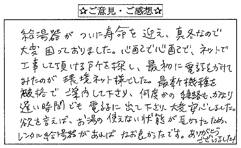 ☆ご意見・ご感想☆
給湯器がついに寿命を迎え、真冬なので
大変困っておりました。心配で心配で、ネットで
工事して頂ける所を探し、最初に電話をかけて
みたのが環境ネット様でした。最新機種を
格安でご案内して下さり、何度かの
遅い時間でも電話に出て下さり、大変安心しました。
欲を言えば、お湯の使えない状態が
レンタル給湯器があればなお良かったです。ありがとう
ございました。